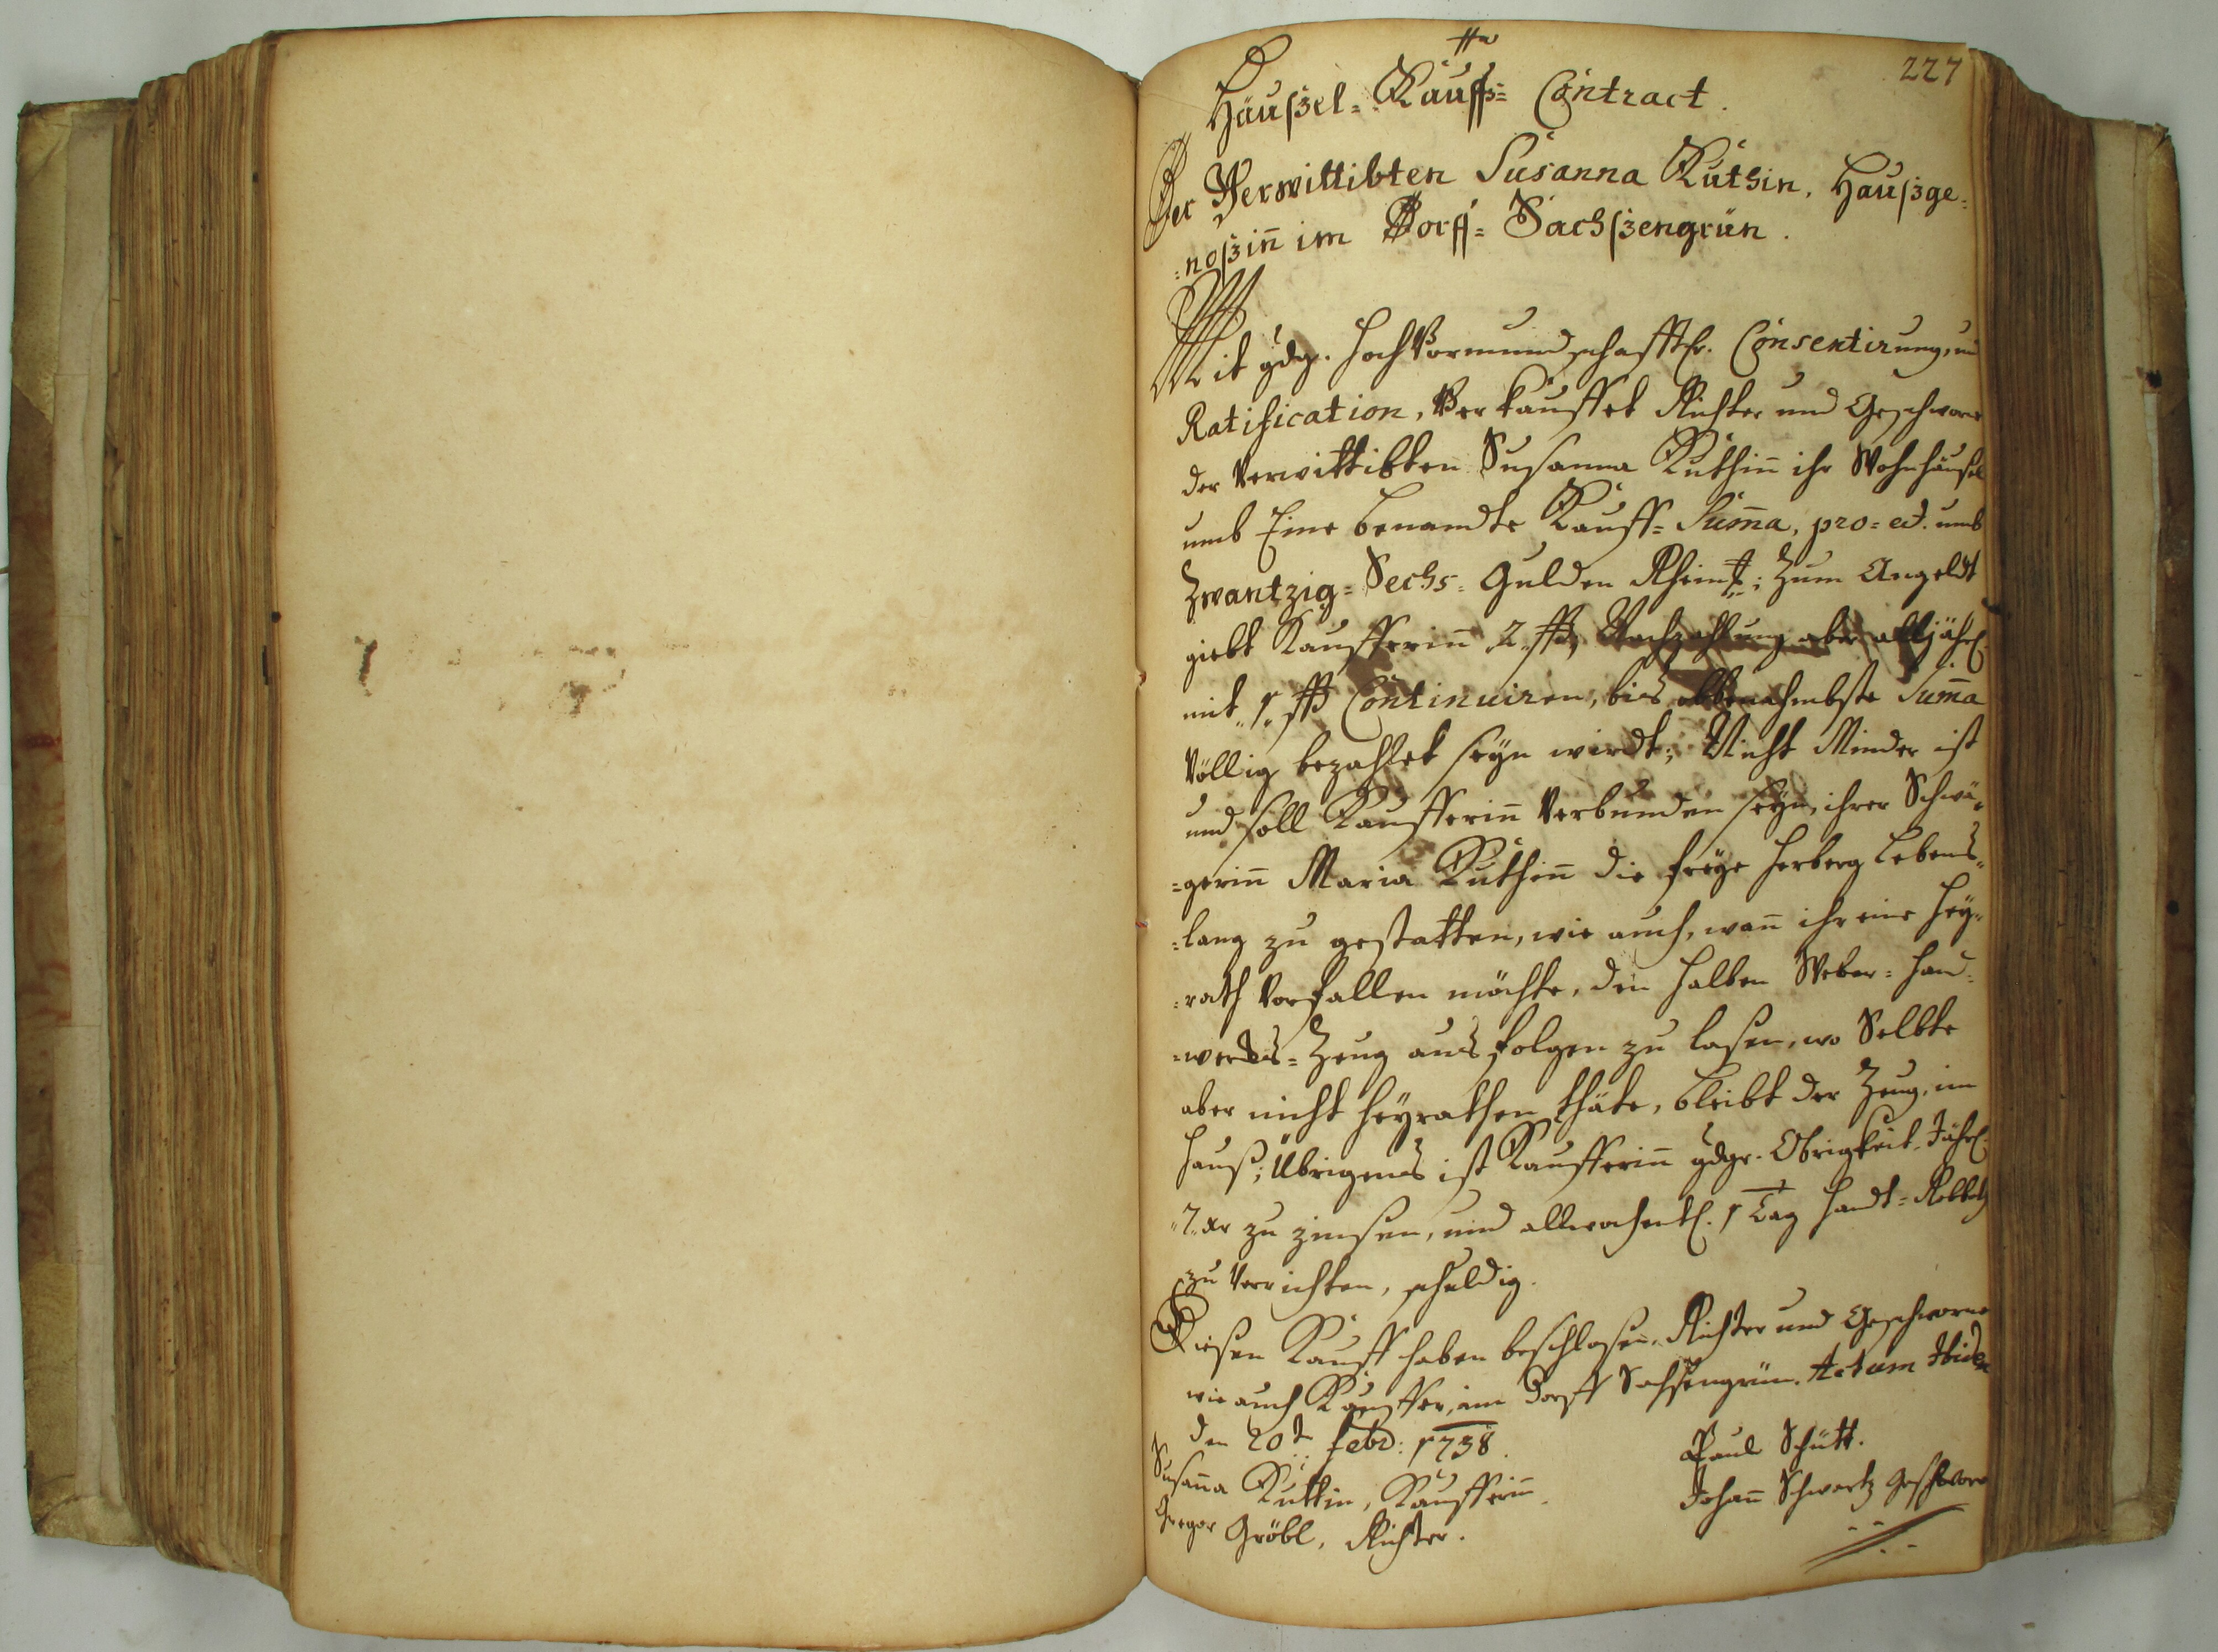 227
Häußel-Kauffs-Contract.
Der Verwittibten Susanna Kuthin, Haußge-
-noßiñ im Dorff-Sachßengrün.
Mit gdg. Hoch Vormundschafftlr. Consentirung, und
Ratification, Verkauffet Richter und Geschworne
der Verwittibten Susanna Kuthiñ ihr Wohnhäusel
umb Eine benamdte Kauff-Sum̃a, pro- et. umb
Zwantzig-Sechs-Gulden Rheinl.; Zum Angeldt
giebt Kaufferiñ 2 ff, Nachzahlung aber alljährl.
mit 1 ff Continuiren, bis obbenahmbste Sum̃a
Völlig bezahlet seyn wirdt; Nicht Minder ist
und soll Kaufferiñ Verbunden seyn, ihrer Schwä-
-geriñ Maria Kuthiñ die freye Herberg Lebens-
-lang zu gestatten, wie auch, wañ ihr eine Hey-
-rath Vorfallen möchte, den halben Weber-Hand-
-wercks-Zeug ausfolgen zu laßen, wo Selbte
aber nicht heyrathen thäte, bleibt der Zeug im
Hauß; Übrigens ist Kaufferiñ gdgr. Obrigkeit Jährl.
7 xr zu zinsen, und allwochentl. 1 Tag Handt-Robbeth
zu Verrichten, schuldig.
Diesen Kauff haben beschloßen, Richter und Geschworne
wie auch Kauffer, im Dorff Sachsengrün. Actum Ibidem
den 20t. Febr: 1738.
Paul Schütt.
Susaña Kuttin, Kaufferiñ.
Johañ Schwartz Geschworne
Gregor Gröbl, Richter.